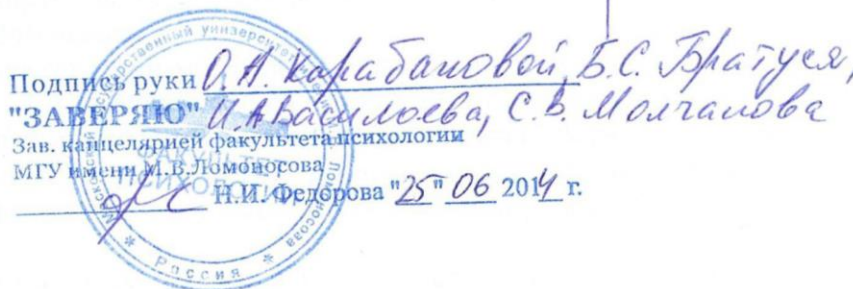 Подпись руки О.А. Карабановой, Б.С. Братуся,
"ЗАВЕРЯЮ" И.А. Васильева, С.В. Молчанова
Зав. канцелярией факультета психологии
МГУ имени М.В.Ломоносова
Н.И. Федорова "25" 06 2014 г.
ФАКУЛЬТЕТ
ПСИХОЛОГИИ
* Россия *